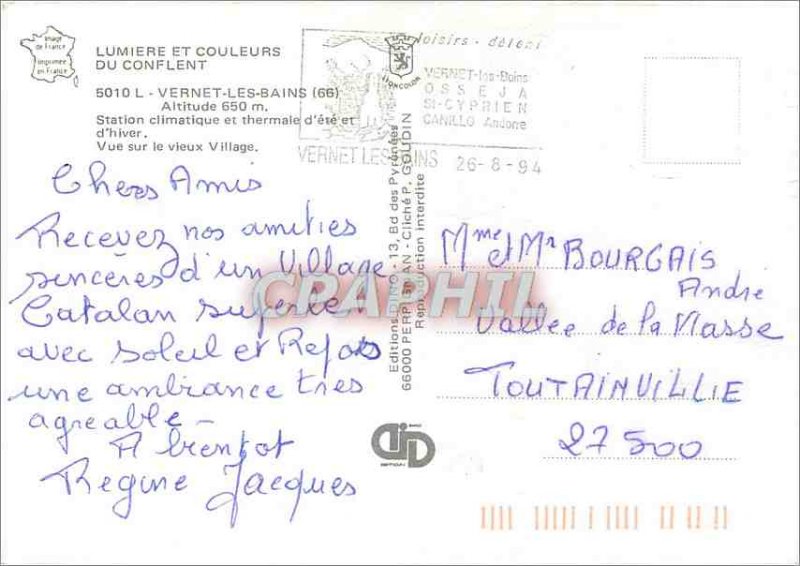 Image
de France
Imprimée
en France
LUMIERE ET COULEURS
DU CONFLENT
5010 L - VERNET-LES-BAINS (66)
Altitude 650 m.
Station climatique et thermale d'été et
d'hiver.
Vue sur le vieux Village.
loisirs - détent
VERNET-les-Bains
OSSEJA
St-CYPRIEN
CANILLO Andorre
VERNET LES BAINS 26-8-94
Chers Amis
Recevez nos amities
sincères d'un Village
Catalan superbe
avec soleil et Repos
une ambiance tres
agreable -
A bientot
Regine Jacques
Editions DINO - 13, Bd des Pyrénées
66000 PERPIGNAN - Cliché P. GOUDIN
Reproduction interdite
CPAPHIL
Mme et Mr BOURGAIS
André
Vallee de la Masse
TOUTAINVILLIE
27500